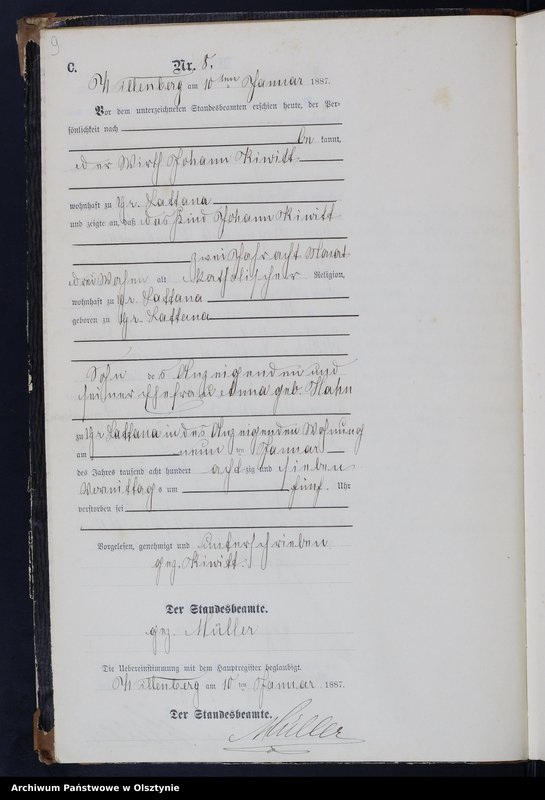 9
C.
Nr. 8.
Wittenberg am 10ten Januar 1887.
Vor dem unterzeichneten Standesbeamten erschien heute, der Per-
sönlichkeit nach
be kannt,
der Wirth Johann Kiwitt
wohnhaft zu Gr. Lattana
und zeigte an, daß das Kind Johann Kiwitt
zwei Jahr acht Monat
drei Wochen alt katholischer Religion,
wohnhaft zu Gr. Lattana
geboren zu Gr. Lattana
Sohn des Anzeigenden und
seiner Ehefrau Anna geb. Hahn
zu Gr. Lattana in des Anzeigenden Wohnung
am neun ten Januar
des Jahres tausend acht hundert acht zig und sieben
Vormittags um fünf Uhr
verstorben sei
Vorgelesen, genehmigt und unterschrieben
gez. Kiwitt.
Der Standesbeamte.
gez. Müller
Die Uebereinstimmung mit dem Hauptregister beglaubigt.
am 10 ten Januar 1887.
Der Standesbeamte.
Müller
Archiwum Państwowe w Olsztynie